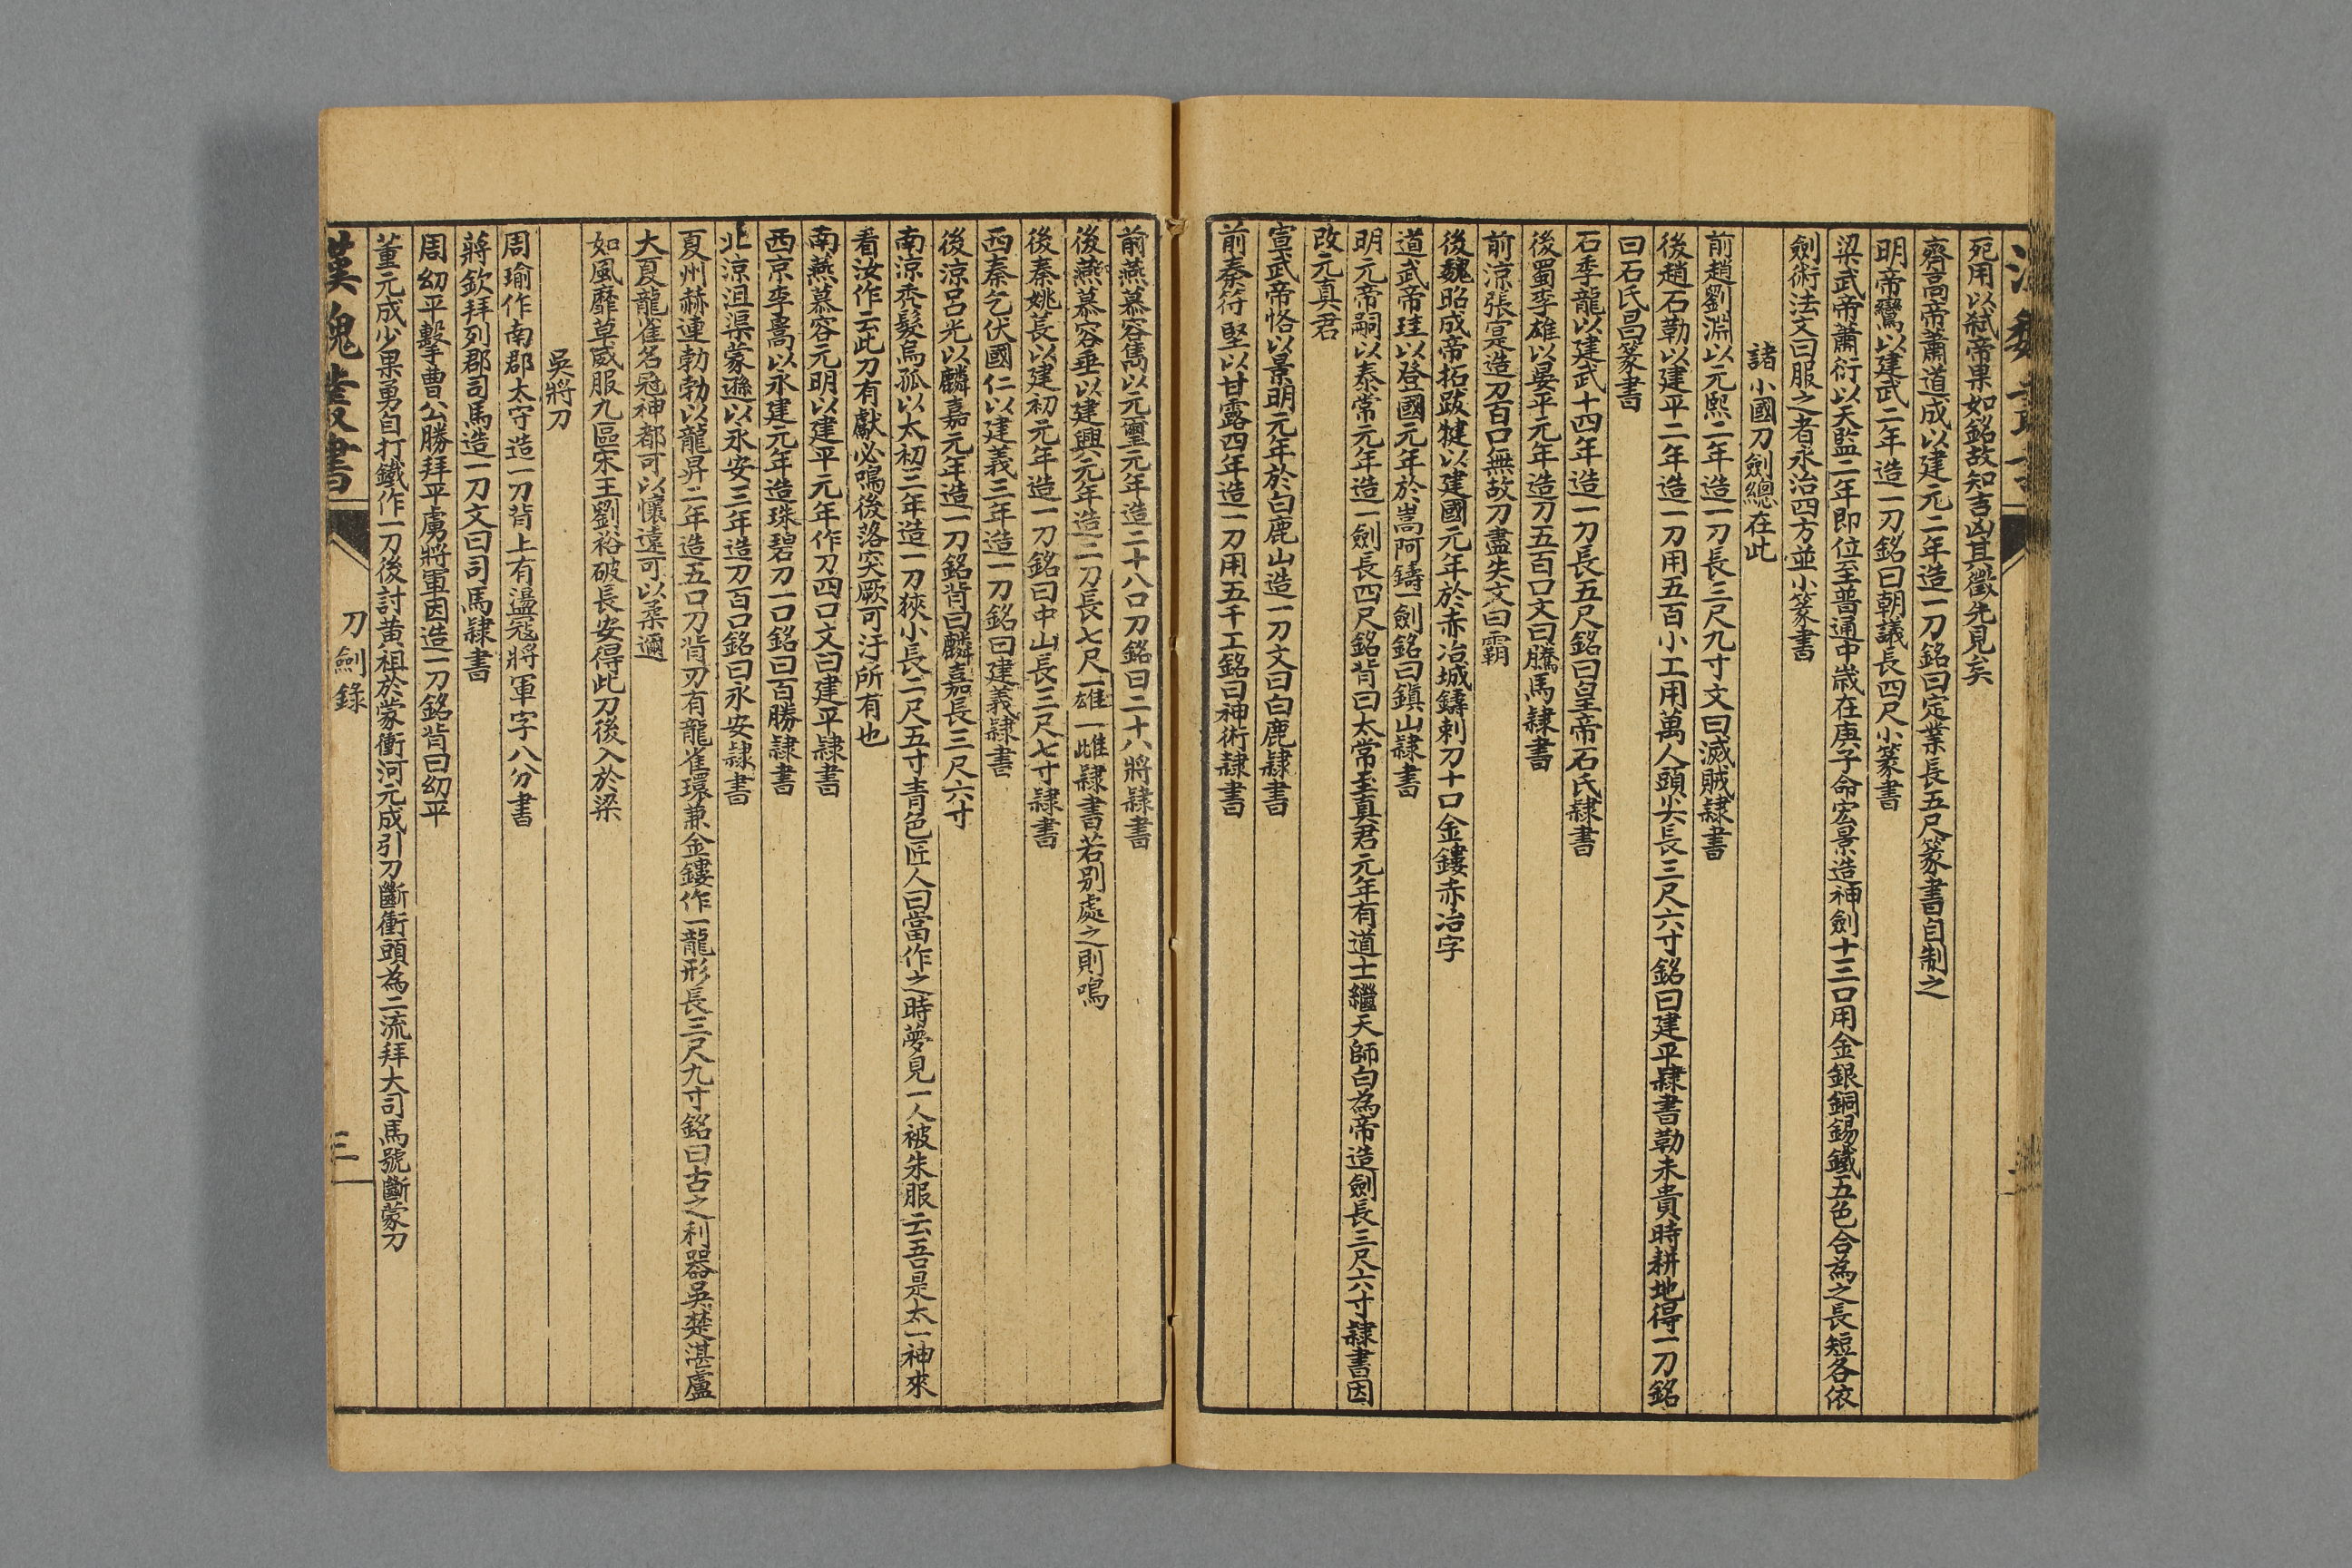 死用以弒帝果如銘故知吉凶其徵先見矣
齊高帝蕭道成以建元二年造一刀銘曰定業長五尺篆書自制之
明帝鸞以建武二年造一刀銘曰朝議長四尺小篆書
梁武帝蕭衍以天監二年即位至普通中歲在庚子命宏景造神劍十三口用金銀銅錫鐵五色合為之長短各依
劍術法文曰服之者永治四方並小篆書
諸小國刀劍總在此
前趙劉淵以元熙二年造一刀長三尺九寸文曰滅賊隸書
後趙石勒以建平二年造一刀用五百小工用萬人頭尖長三尺六寸銘曰建平隸書勒未貴時耕地得一刀銘
曰石氏昌篆書
石季龍以建武十四年造一刀長五尺銘曰皇帝石氏隸書
後蜀李雄以晏平元年造刀五百口文曰騰馬隸書
前涼張寔造刀百口無故刀盡失文曰霸
後魏昭成帝拓跋犍以建國元年於赤冶城鑄剌刀十口金鏤赤冶字
道武帝珪以登國元年於嵩阿鑄一劍銘曰鎮山隸書
明元帝嗣以泰常元年造一劍長四尺銘背曰太常至真君元年有道士繼天師白為帝造劍長三尺六寸隸書因
改元真君
宣武帝恪以景明元年於白鹿山造一刀文曰白鹿隸書
前秦符堅以甘露四年造一刀用五千工銘曰神術隸書
前燕慕容雋以元璽元年造二十八口刀銘曰二十八將隸書
後燕慕容垂以建興元年造二刀長七尺一雄一雌隸書若别處之則鳴
後秦姚萇以建初元年造一刀銘曰中山長三尺七寸隸書
西秦乞伏國仁以建義三年造一刀銘曰建義隸書
後涼呂光以麟嘉元年造一刀銘背曰麟嘉長三尺六寸
南涼禿髮烏孤以太初三年造一刀狹小長二尺五寸青色匠人曰當作之時夢見一人被朱服云吾是太一神來
看汝作云此刀有獻必鳴後落突厥可汗所有也
南燕慕容元明以建平元年作刀四口文曰建平隸書
西京李暠以永建元年造珠碧刀一口銘曰百勝隸書
北涼沮渠蒙遜以永安三年造刀百口銘曰永安隸書
夏州赫連勃勃以龍昇二年造五口刀背刃有龍雀環兼金鏤作一龍形長三尺九寸銘曰古之利器吳楚湛盧
大夏龍雀名冠神都可以懷遠可以柔邇
如風靡草威服九區宋王劉裕破長安得此刀後入於梁
吳將刀
周瑜作南郡太守造一刀背上有盪寇將軍字八分書
蔣欽拜列郡司馬造一刀文曰司馬隸書
周幼平擊曹公勝拜平虜將軍因造一刀銘背曰幼平
董元成少果勇自打鐵作一刀後討黄祖於蒙衝河元成引刀斷衝頭為二流拜大司馬號斷蒙刀
漢魏叢書
刀劍錄
三